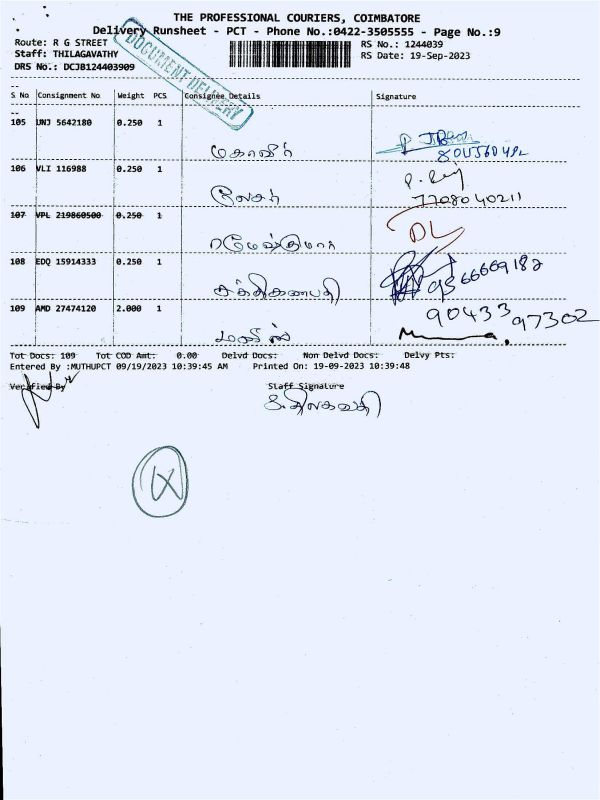 THE PROFESSIONAL COURIERS, COIMBATORE
Delivery Runsheet - PCT - Phone No.:0422-3505555 - Page No.:9
Route: R G STREET
RS No.: 1244039
Staff: THILAGAVATHY
RS Date: 19-Sep-2023
DRS No.: DCJB124403909
DOCUMENT DELIVERY
S No Consignment No Weight PCS Consignee Details Signature
105 UNJ 5642180 0.250 1
மகாவீர்
106 VLI 116988 0.250 1
லேசர்
7708040211
107 VPL 219860500 0.250 1
ரமேஷ்குமார் DL
108 EDQ 15914333 0.250 1
சக்திகணபதி 9566669182
109 AMD 27474120 2.000 1
90433 97302
Tot Docs: 109 Tot COD Amt: 0.00 Delvd Docs: Non Delvd Docs: Delvy Pts:
Entered By :MUTHUPCT 09/19/2023 10:39:45 AM Printed On: 19-09-2023 10:39:48
Verified By Staff Signature
க.திலகவதி